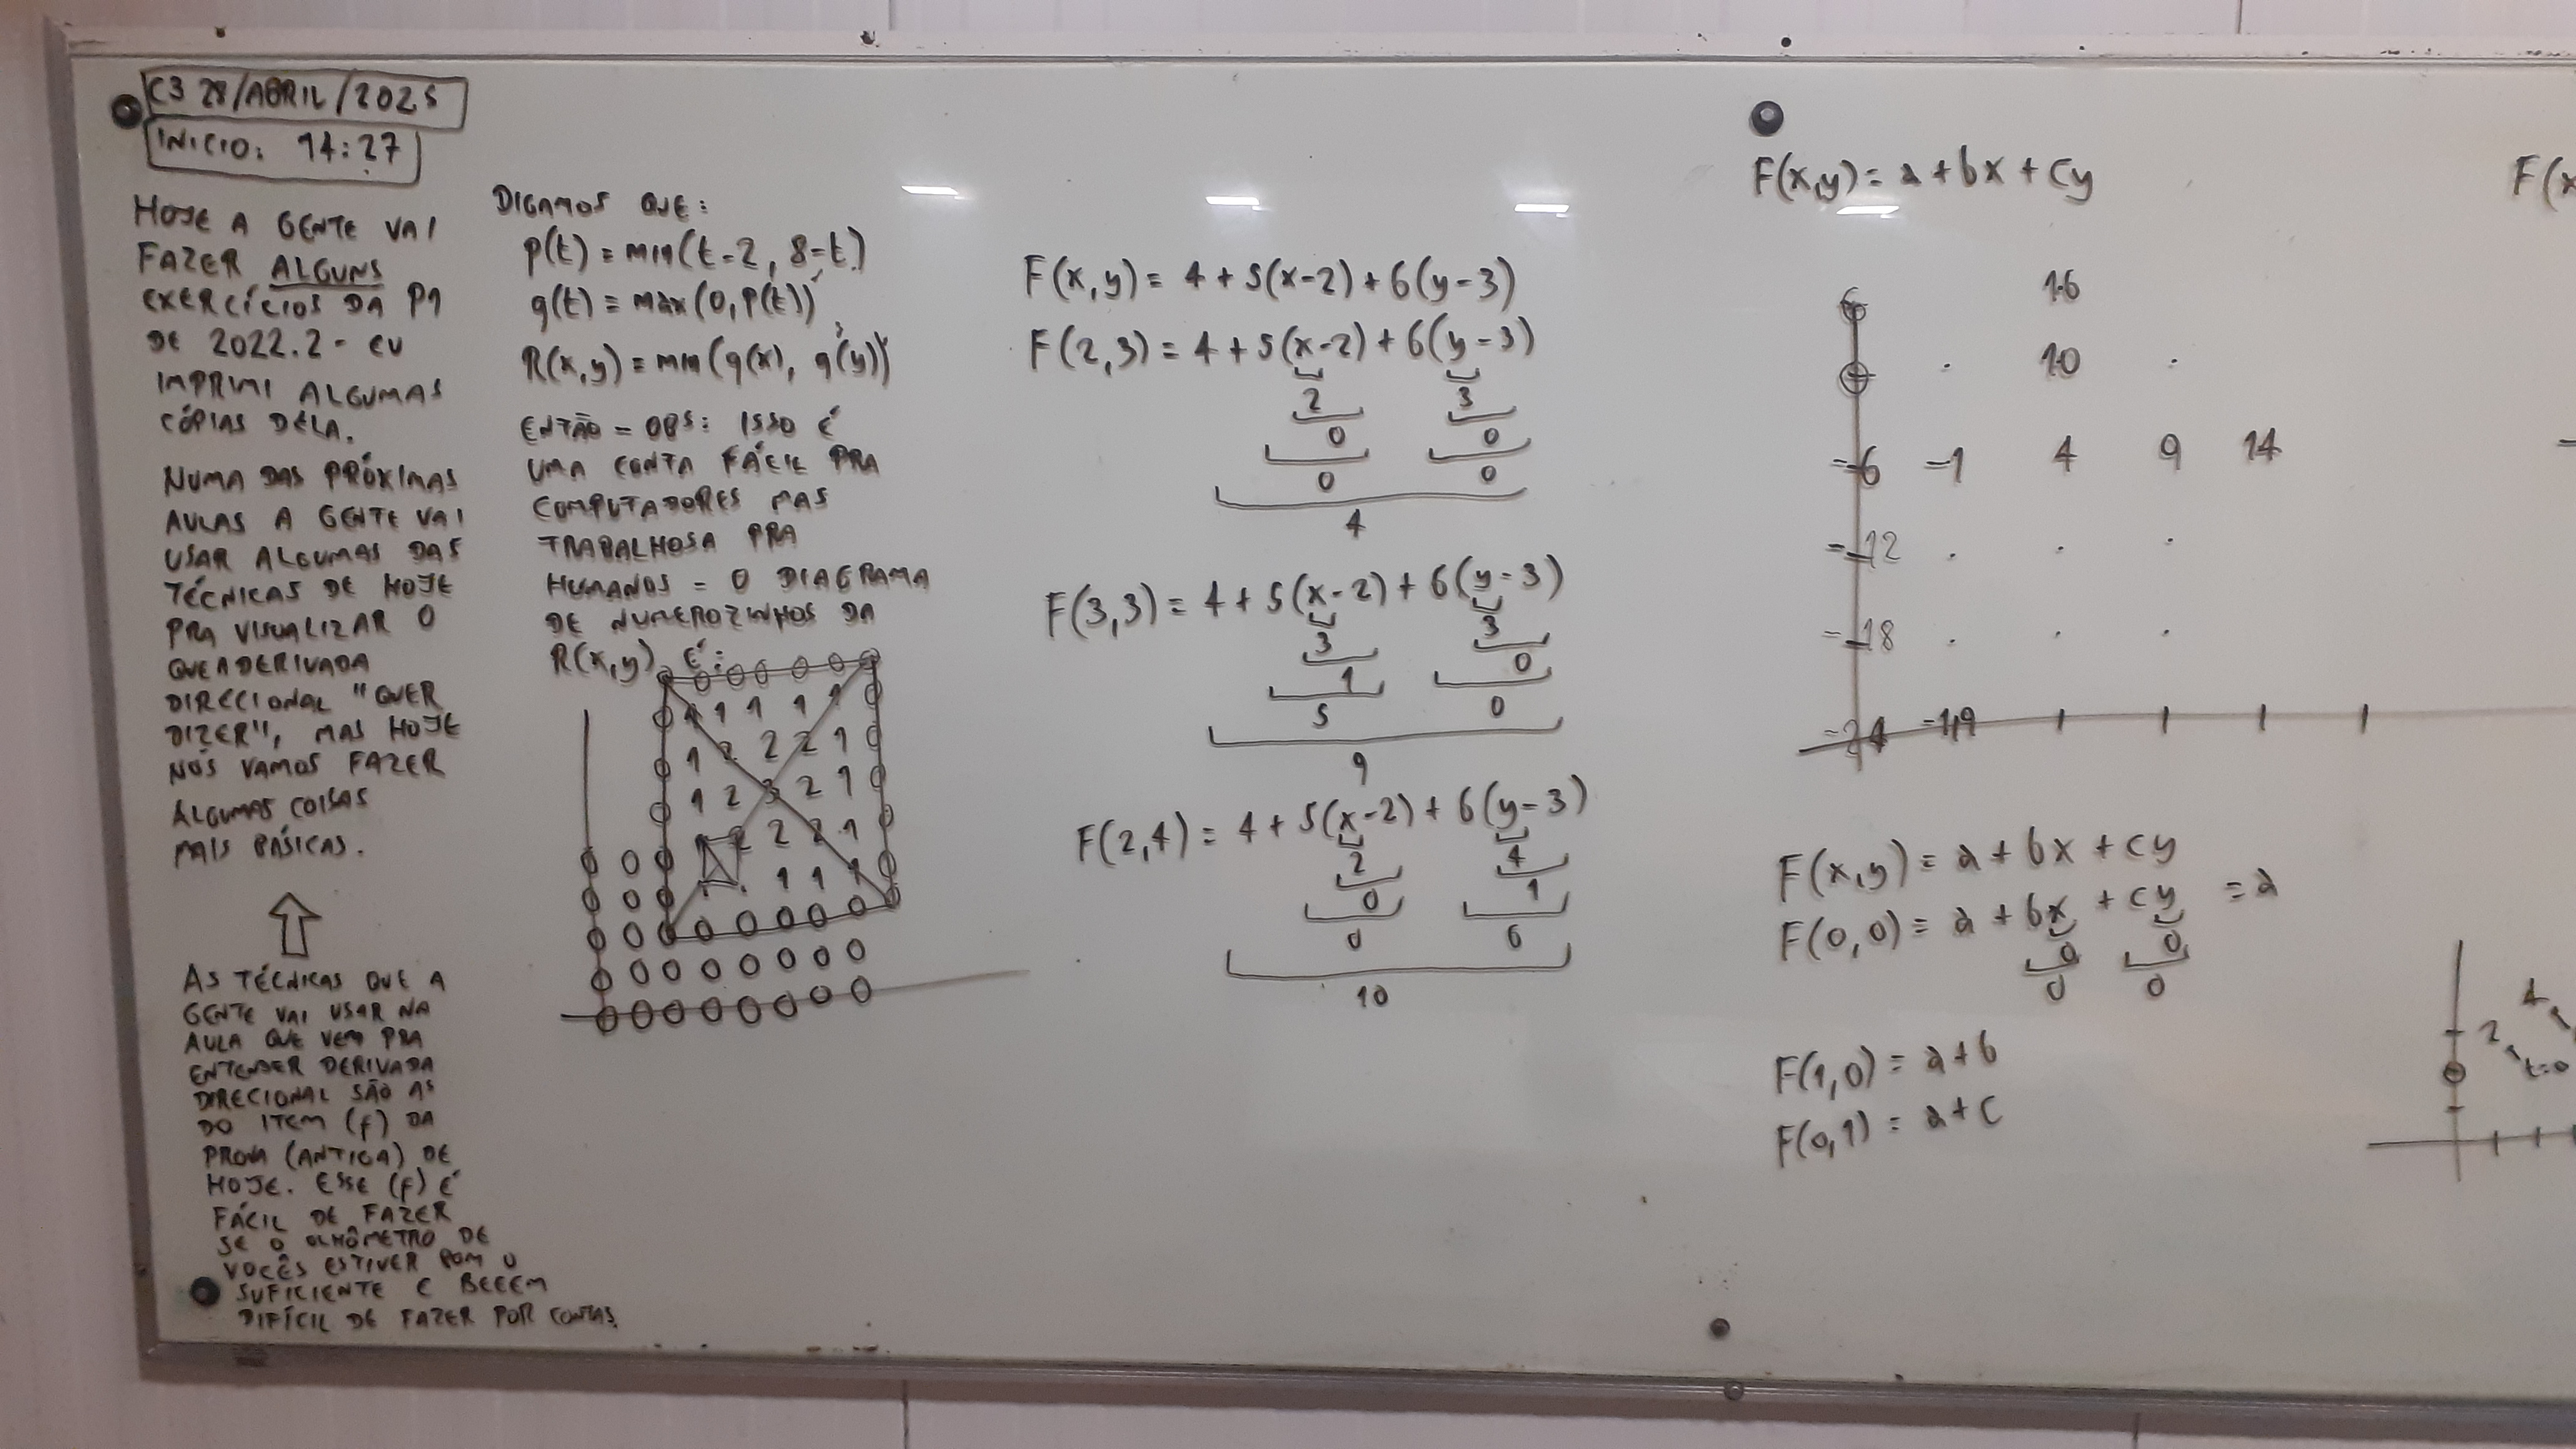 C3 28/ABRIL/2025
INICIO: 14:27
HOJE A GENTE VAI
FAZER ALGUNS
EXERCÍCIOS DA P1
DE 2022.2 - EU
IMPRIMI ALGUMAS
CÓPIAS DELA.
NUMA DAS PRÓXIMAS
AULAS A GENTE VAI
USAR ALGUMAS DAS
TÉCNICAS DE HOJE
PRA VISUALIZAR O
QUE A DERIVADA
DIRECIONAL "QUER
DIZER", MAS HOJE
NÓS VAMOS FAZER
ALGUMAS COISAS
MAIS BÁSICAS.
AS TÉCNICAS QUE A
GENTE VAI USAR NA
AULA QUE VEM PRA
ENTENDER DERIVADA
DIRECIONAL SÃO AS
DO ITEM (f) DA
PROVA (ANTIGA) DE
HOJE. ESSE (f) É
FÁCIL DE FAZER
SE O OLHÔMETRO DE
VOCÊS ESTIVER BOM O
SUFICIENTE E BEEEM
DIFÍCIL DE FAZER POR CONTAS.
DIGAMOS QUE:
p(t) = min(t-2, 8-t)
q(t) = max(0, p(t))
R(x,y) = min(q(x), q(y))
ENTÃO - OBS: ISSO É
UMA CONTA FÁCIL PRA
COMPUTADORES MAS
TRABALHOSA PRA
HUMANOS - O DIAGRAMA
DE NUMEROZINHOS DA
R(x,y) É:
0 0 0 0 0 0 0
0 1 1 1 1 1 0
0 1 2 2 2 1 0
0 1 2 3 2 1 0
0 0 0 2 2 2 1 0
0 0 0 1 1 1 0
0 0 0 0 0 0 0 0 0
0 0 0 0 0 0 0 0
0 0 0 0 0 0 0 0
F(x,y) = 4 + 5(x-2) + 6(y-3)
F(2,3) = 4 + 5(x-2) + 6(y-3)
2 3
0 0
0 0
4
F(3,3) = 4 + 5(x-2) + 6(y-3)
3 3
1 0
5 0
9
F(2,4) = 4 + 5(x-2) + 6(y-3)
2 4
0 1
0 6
10
F(x,y) = a + bx + cy
16
10
-6 -1 4 9 14
-12
-18
-24 -19
F(x,y) = a + bx + cy
F(0,0) = a + bx + cy = a
0 0
0 0
F(1,0) = a + b
F(0,1) = a + c
F(x
4
2
t=0